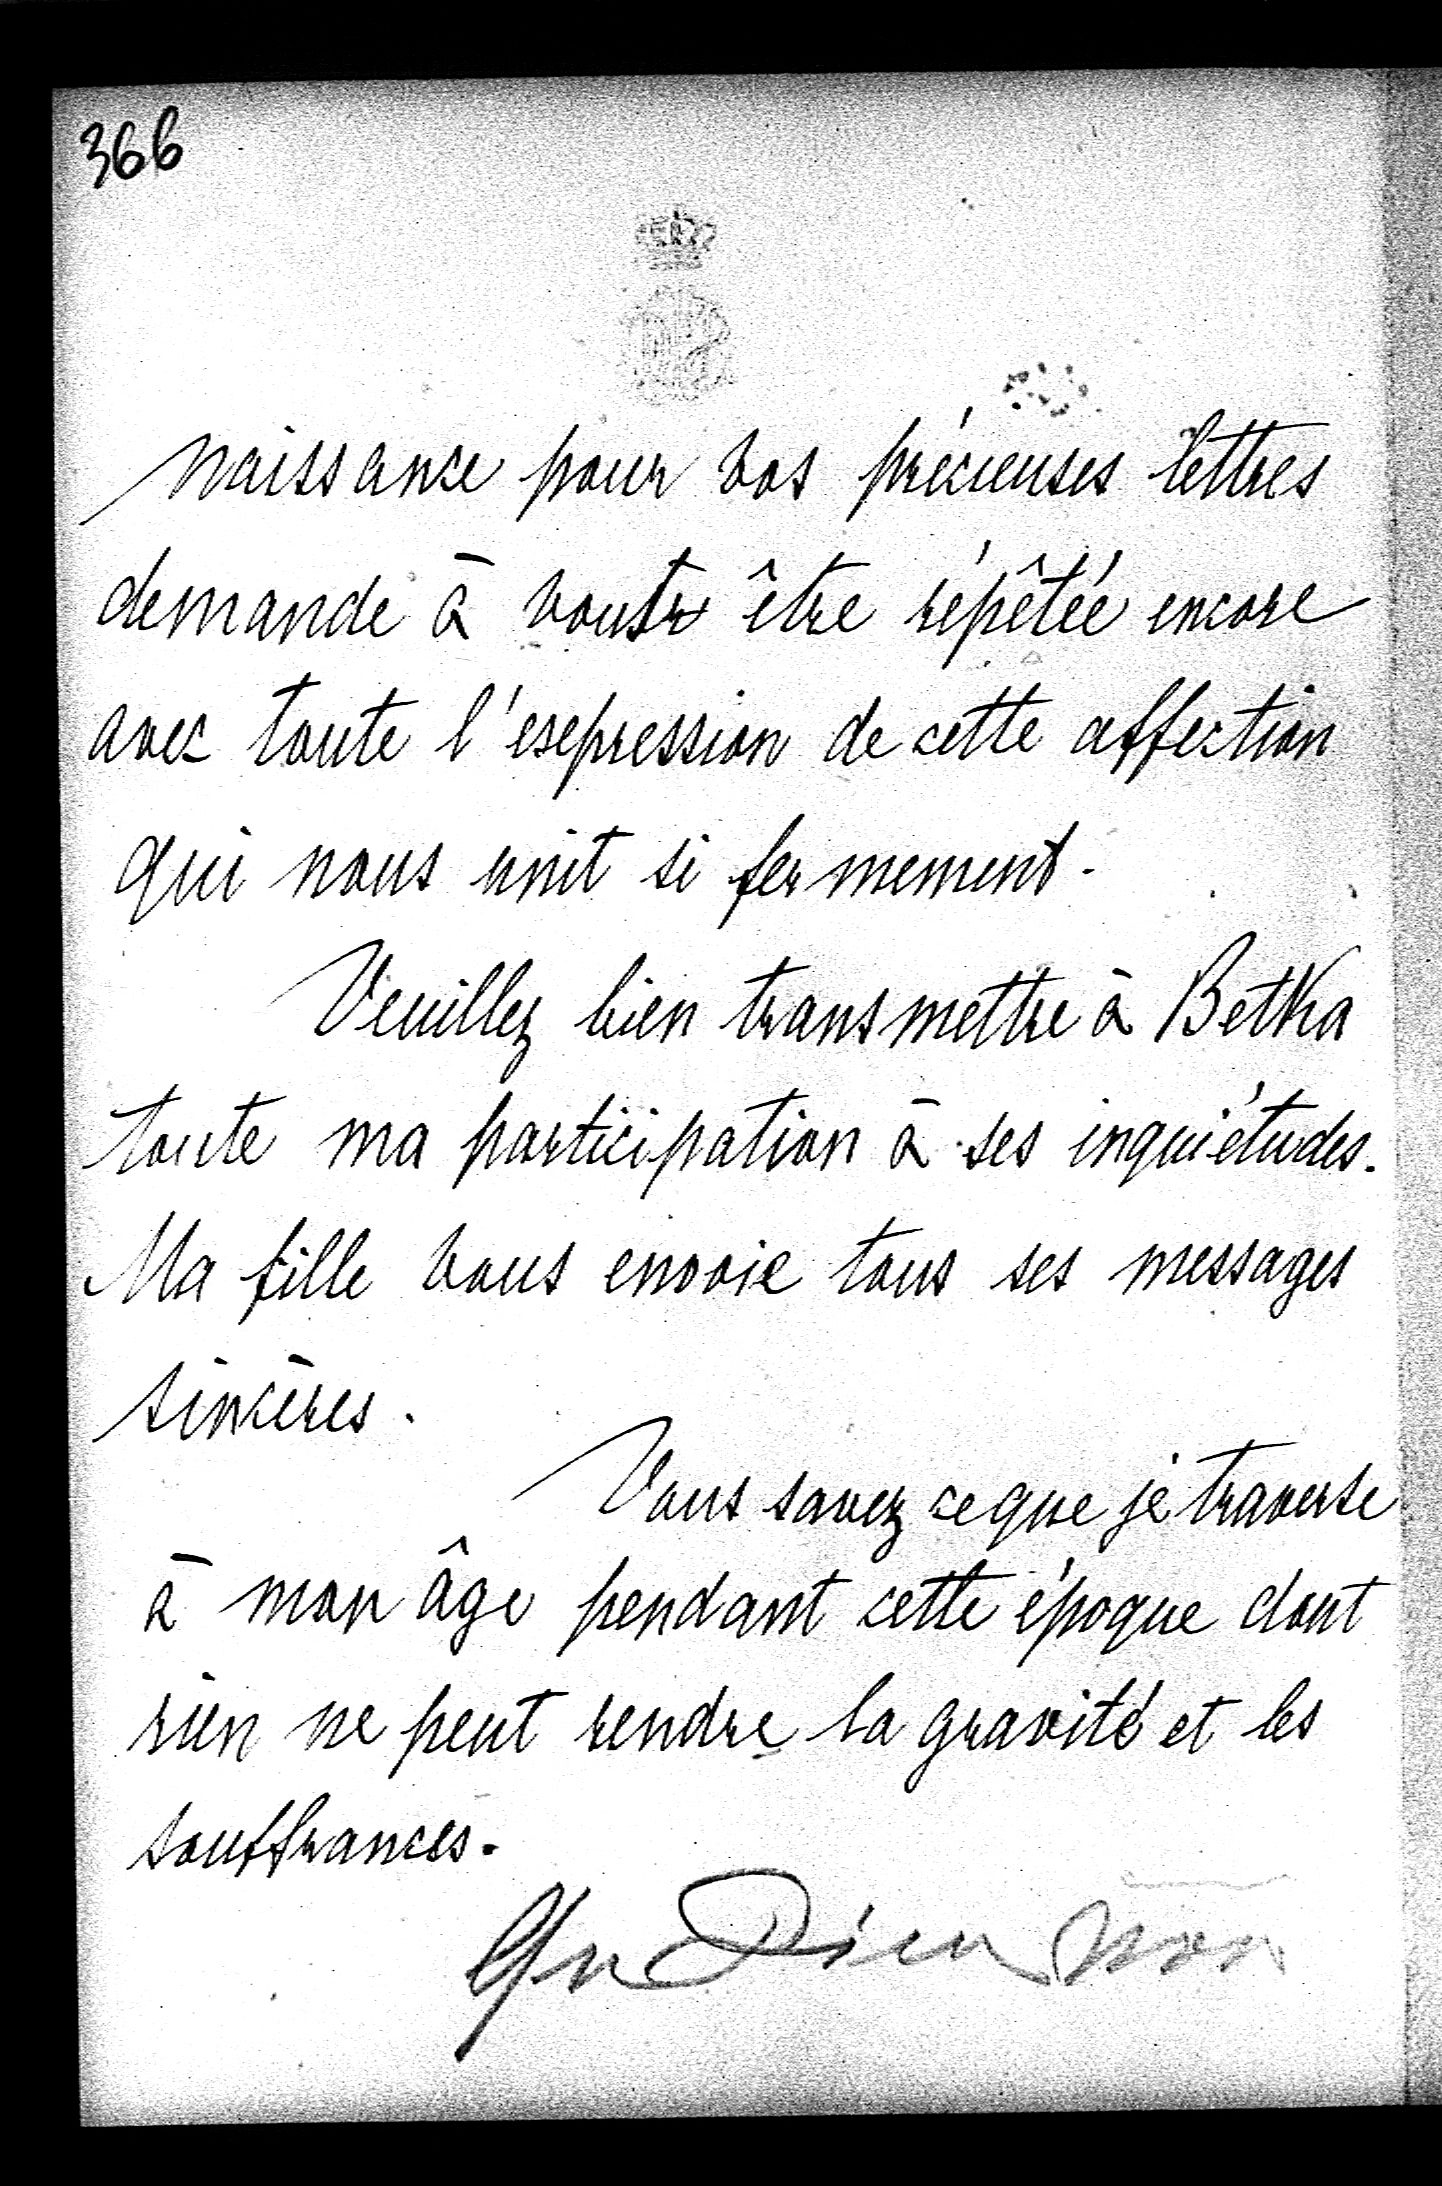 366
naissance pour vos précieuses lettres
demande à vous être répêtée encore
avec toute l'expression de cette affection
qui nous unit si fermement.
Veuillez bien transmettre à Betka
toute ma participation à ses inquiétudes.
Ma fille vous envoie tous ses messages
sincères.
Vous savez ce que je traverse
à mon âge pendant cette époque dont
rien ne peut rendre la gravité et les
souffrances.
Que Dieu nous